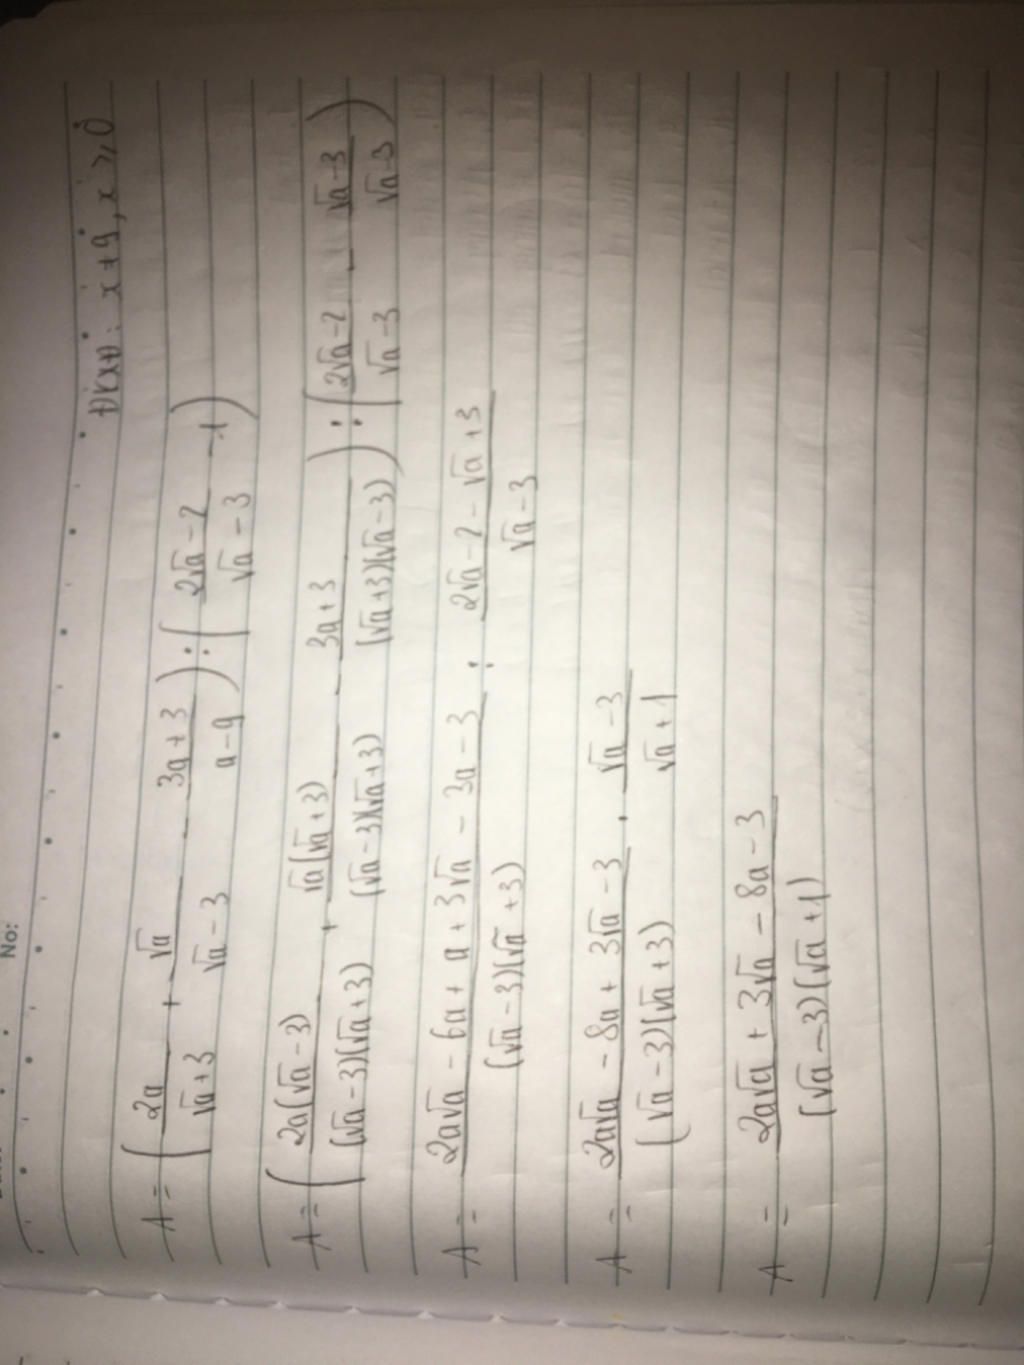 No:
ĐKXĐ: x ≠ 9, x ≥ 0
A = ( 2a/(√a+3) + √a/(√a-3) - (3a+3)/(a-9) ) : ( (2√a-2)/(√a-3) - 1 )
A = ( 2a(√a-3)/((√a-3)(√a+3)) + √a(√a+3)/((√a-3)(√a+3)) - (3a+3)/((√a+3)(√a-3)) ) : ( (2√a-2)/(√a-3) - (√a-3)/(√a-3) )
A = (2a√a - 6a + a + 3√a - 3a - 3)/((√a-3)(√a+3)) : (2√a - 2 - √a + 3)/(√a-3)
A = (2a√a - 8a + 3√a - 3)/((√a-3)(√a+3)) . (√a-3)/(√a+1)
A = (2a√a + 3√a - 8a - 3)/((√a-3)(√a+1))